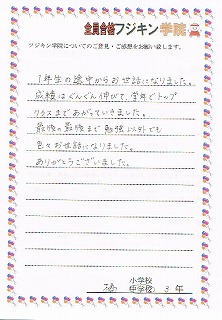 全員合格フジキン学院
フジキン学院についてのご意見・ご感想をお願い致します。
1年生の途中からお世話になりました。
成績はぐんぐん伸びて、学年でトップ
クラスまであがっていきました。
最後の最後まで勉強以外でも
色々お世話になりました。
ありがとうございました。
小学校
中学校 3年